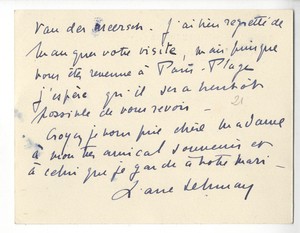 van der meersch. J'ai bien regretté de
manquer votre visite, mais puisque
vous êtes revenue à Paris-Plage
j'espère qu'il sera bientôt
possible de vous revoir -
21
Croyez je vous prie chère madame
à mon très amical souvenir et
à celui que je garde à votre mari -